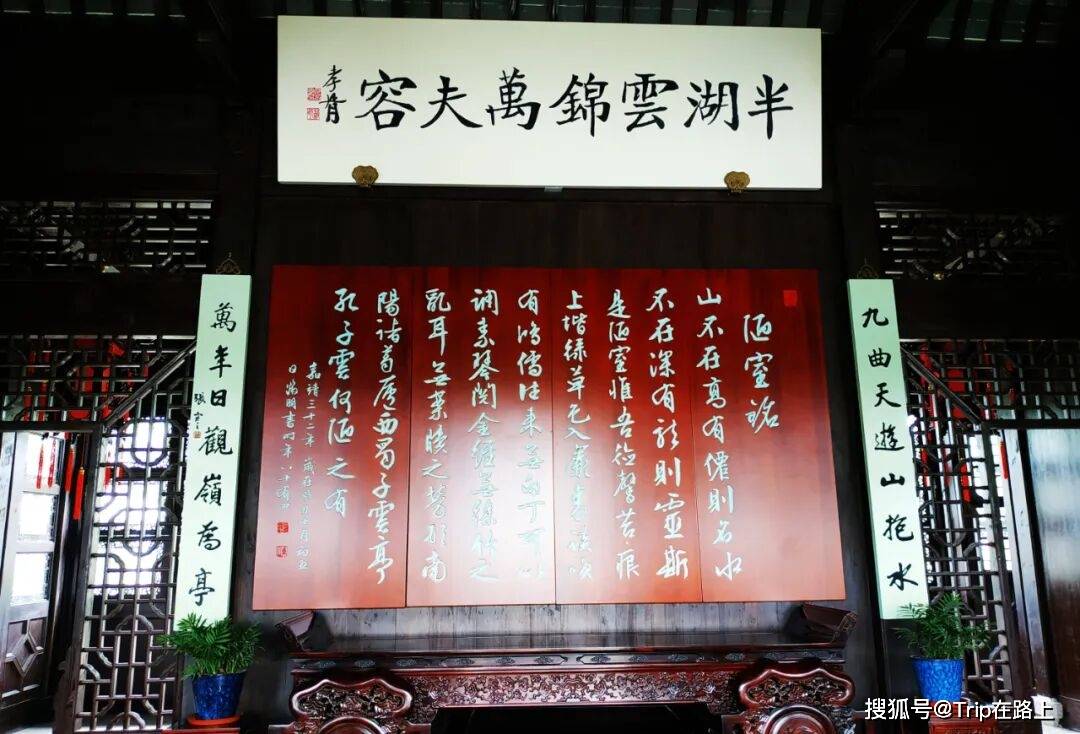 半湖雲錦萬夫容
孝胥
九曲天遊山抱水
陋室銘
山不在高有僊則名水
不在深有龍則靈斯
是陋室惟吾德馨苔痕
上堦緑草色入簾青談笑
有鴻儒往來無白丁可以
調素琴閱金經無絲竹之
亂耳無案牘之勞形南
陽諸葛廬西蜀子雲亭
孔子雲何陋之有
嘉靖三十二年歲在癸丑七月初五
日徵明書時年八十有四
萬年日觀嶺為亭
搜狐号@Trip在路上